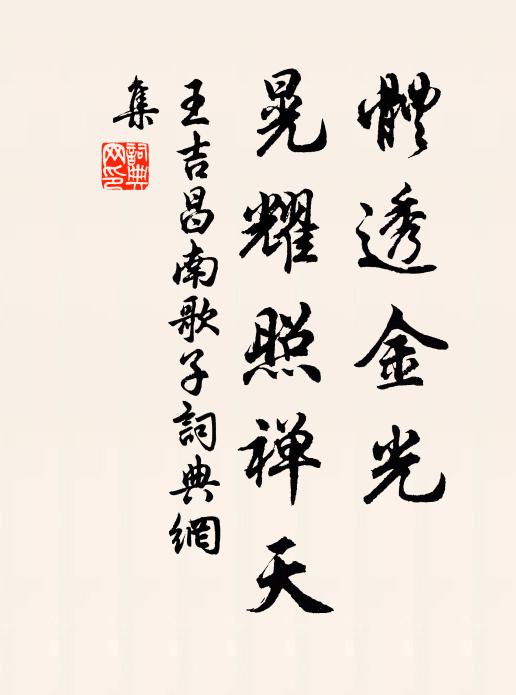 體透金光
晃耀照禅天
王吉昌南歌子詞典網
集
詞典網印